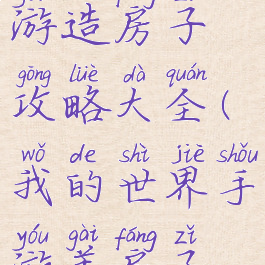 游造房子
gōng lüè dà quán
攻略大全(
wǒ de shì jiè shǒu
我的世界手
yóu gài fáng zǐ